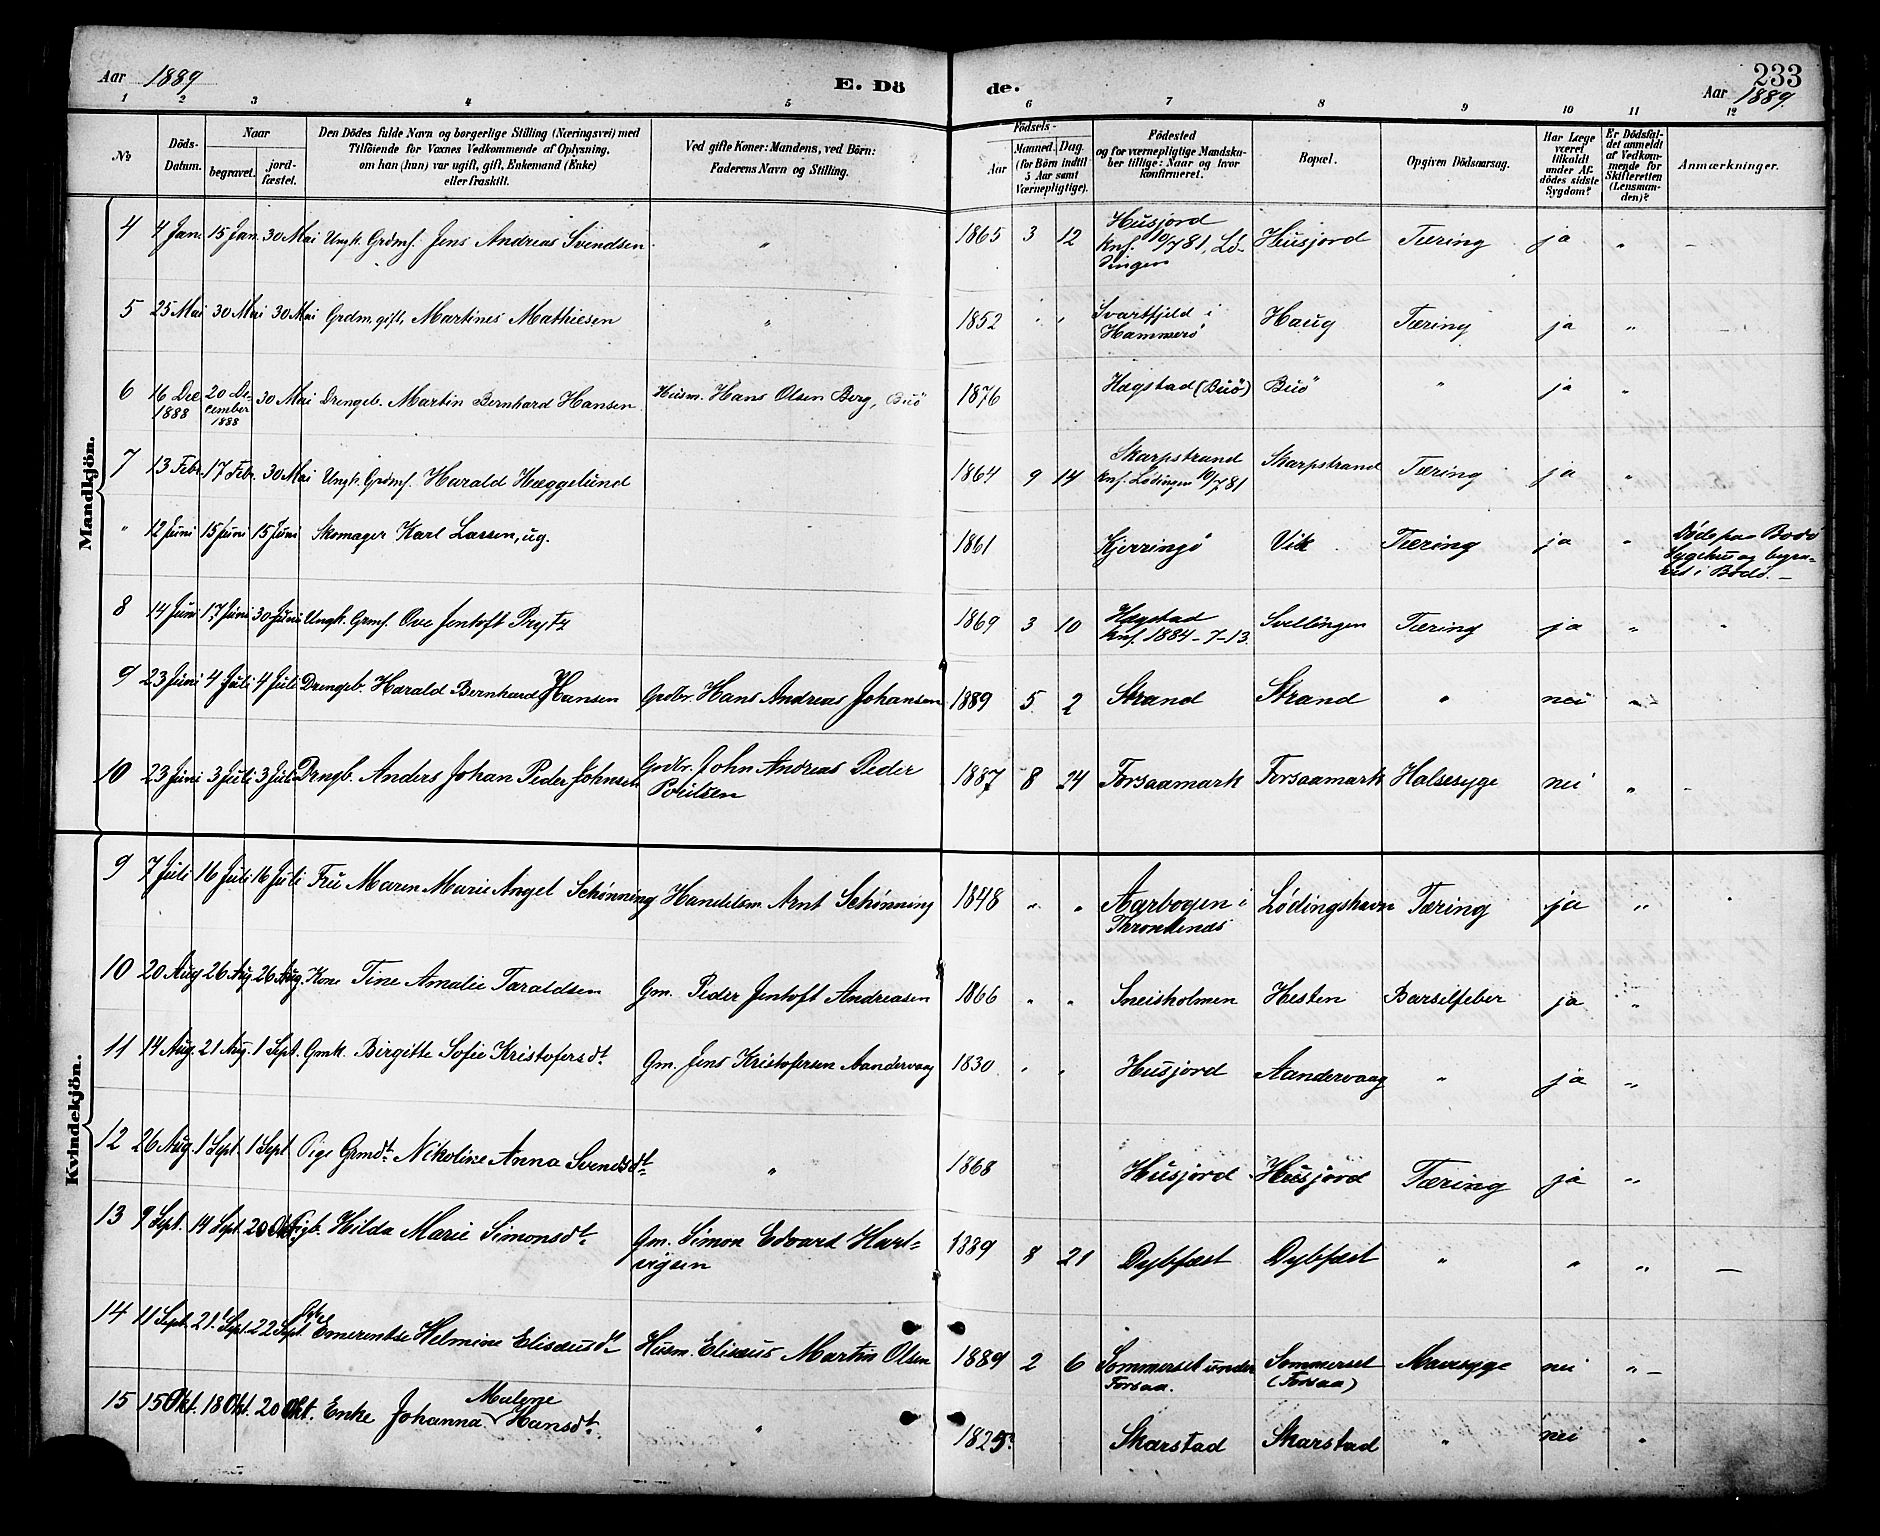 Aar 1889
E. Dö
de.
Aar 1889.
233
1 2 3 4 5 6 7 8 9 10 11 12
№
Döds-Datum.
Naar
begravet.
jord-fæstet.
Den Dödes fulde Navn og borgerlige Stilling (Næringsvei) med
Tilföiende for Voxnes Vedkommende af Oplysning,
om han (hun) var ugift, gift, Enkemand (Enke)
eller fraskilt.
Ved gifte Koner: Mandens, ved Börn:
Faderens Navn og Stilling.
Födsels-
Aar
Maaned. Dag.
(for Börn indtil
5 Aar samt
Værnepligtige).
Födested
og for værnepligtige Mandska-
ber tillige: Naar og hvor
konfirmeret.
Bopæl.
Opgiven Dödsaarsag.
Har Læge
været
tilkaldt
under Af-
dödes sidste
Sygdom?
Er Dödsfal-
det anmeldt
af Vedkom-
mende for
Skifteretten
(Lensman-
den)?
Anmærkninger.
Mandkjön.
4 4 Jan. 15 Jan. 30 Mai Ungk. Grdmf. Jens Andreas Svendsen " 1865 3 12 Husjord Knf. 10/7 81, Lö-dingen Husjord Tæring ja " –
5 25 Mai 30 Mai 30 Mai Grdm. gift, Martines Mathiesen " 1852 " " Svartfjeld i Hammerö Haug Tæring ja " –
6 16 Dec 1888 20 De-cember 1888 30 Mai Drengeb. Martin Bernhard Hansen Husm. Hans Olsen Berg, Buö 1876 Hagstad (Buö) Buö " ja "
7 13 Febr. 17 Febr. 30 Mai Ungk. Grdmf. Harald Hæggelund 1864 9 14 Skarpstrand Knf. Lödingen 10/7 81 Skarpstrand Tæring ja "
" 12 Juni 15 Juni 15 Juni Skomager Karl Lassen, ug. 1861 Kjerringö Vik Tæring ja " Döde paa Bodö Sygehus og begra-vet i Bodö. –
8 14 Juni 17 Juni 30 Juni Ungk. Grmf. Ove Jentoft Prytz 1869 3 10 Hagstad Knf. 1884-7-13. Svellingen Tæring ja " "
9 23 Juni 4 Juli 4 Juli Drengeb. Harald Bernhard Hansen Grdbr. Hans Andreas Johansen 1889 5 2 Strand Strand " nei "
10 23 Juni 3 Juli 3 Juli Drngb. Anders Johan Peder Johnsen Grdbr. John Andreas Peder Poulsen 1887 8 24 Forsaamark Forsaamark Halsesyge nei " –
Kvindekjön.
9 7 Juli 16 Juli 16 Juli Fru Maren Marie Angel Schönning Handelsm. Arnt Schönning 1848 " " Aarbogen i Thronhenas Lödingshavn Tæring ja " "
10 20 Aug 26 Aug. 26 Aug. Kone Tine Amalie Taraldsen Gm. Peder Jentoft Andreasen 1866 " " Sneisholmen Hesten Barselfeber ja "
11 14 Aug. 21 Aug. 1 Sept. Gmk. Birgitte Sofie Kristofersdt. Gm. Jens Kristofersen Aandervaag 1830 " " Husjord Aandervaag " ja "
12 26 Aug. 1 Sept. 1 Sept Pige Grmdt. Nikoline Anna Svendsdt. " 1868 Husjord Husjord Tæring ja "
13 9 Sept. 14 Sept. 20 Okt. Pigb. Hilda Marie Simonsdt. Gm. Simon Edvard Hart-vigsen 1889 8 21 Dybfæst Dybfæst " " " –
14 11 Sept. 21. Sept. 22 Sept. Pgb. Emerentse Helmine Elisæusdt. Husm. Elisæus Martin Olsen 1889 2 6 Sommerset under Forsaa. Sommerset (Forsaa) Mavesyge nei " –
15 15 Okt. 18 Okt. 20 Okt. Enke Johanna Malene Hansdt. " 1825. Skarstad Skarstad " nei "